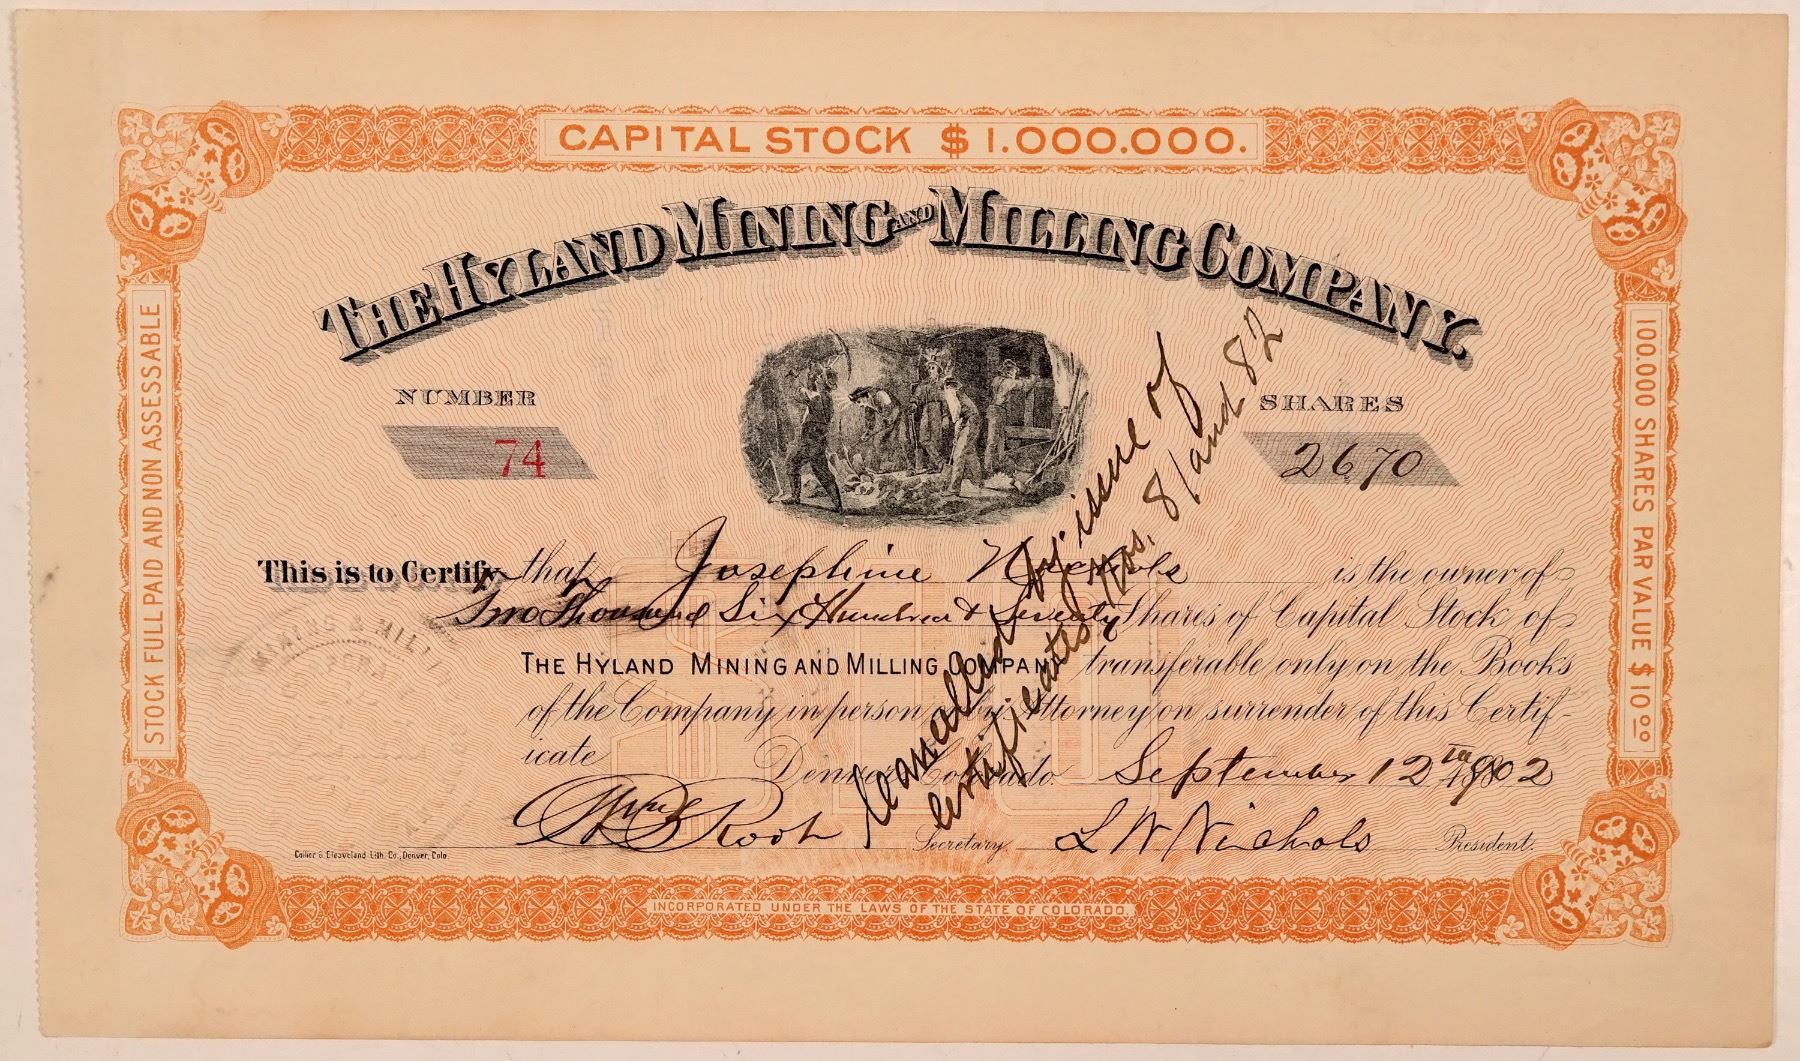 CAPITAL STOCK $1.000.000.
THE HYLAND MINING AND MILLING COMPANY.
NUMBER
SHARES
74
2670
STOCK FULL PAID AND NON ASSESSABLE
100.000 SHARES PAR VALUE $10.00
This is to Certify that Josephine Nichols is the owner of
Two Thousand Six Hundred & Seventy Shares of Capital Stock of
THE HYLAND MINING AND MILLING COMPANY transferable only on the Books
of the Company in person or by Attorney on surrender of this Certif-
icate Denver Colorado. September 12th 1902
Wm B Root Secretary L W Nichols President.
Cancelled by issue of
certificates Nos. 81 and 82
MINING & MILL
Collier & Cleaveland Lith. Co., Denver, Colo.
INCORPORATED UNDER THE LAWS OF THE STATE OF COLORADO.